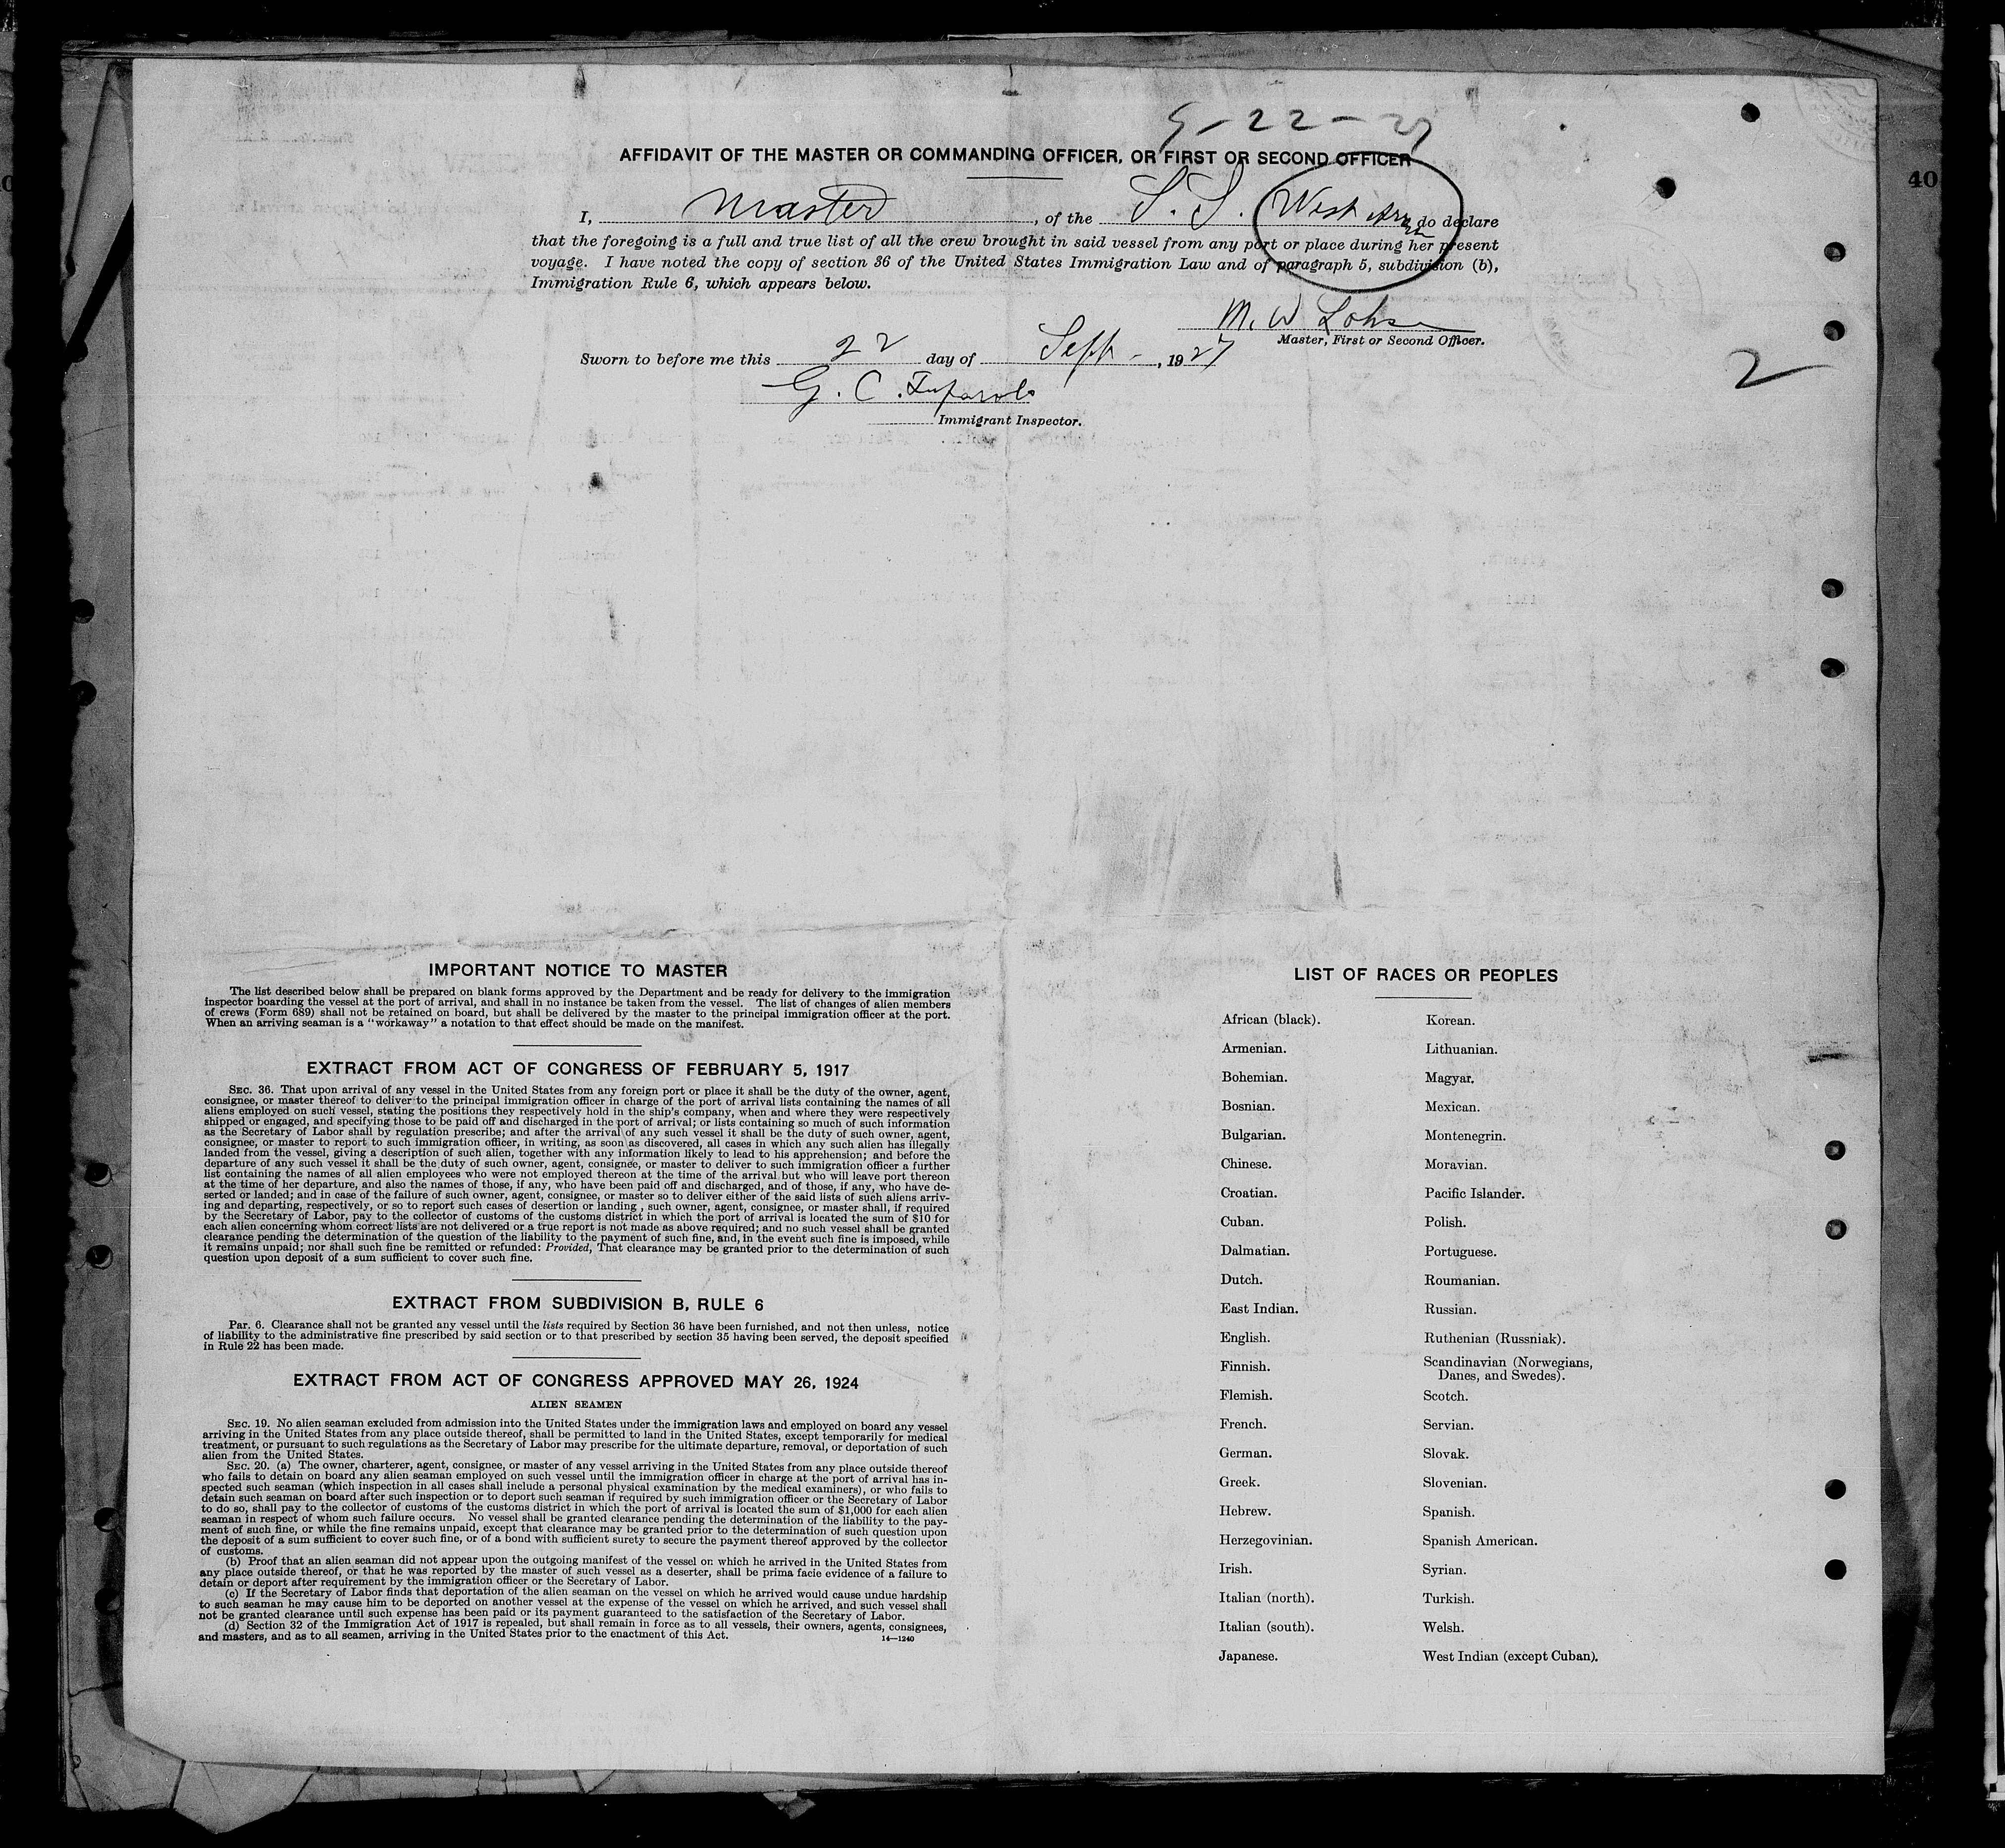 9-22-27
AFFIDAVIT OF THE MASTER OR COMMANDING OFFICER, OR FIRST OR SECOND OFFICER
I, Master, of the S. S. West do declare
that the foregoing is a full and true list of all the crew brought in said vessel from any port or place during her present
voyage. I have noted the copy of section 36 of the United States Immigration Law and of paragraph 5, subdivision (b),
Immigration Rule 6, which appears below.
M. W. Lohse
Master, First or Second Officer.
Sworn to before me this 22 day of Sept-, 1927
G. C.
Immigrant Inspector.
2
40
IMPORTANT NOTICE TO MASTER
The list described below shall be prepared on blank forms approved by the Department and be ready for delivery to the immigration
inspector boarding the vessel at the port of arrival, and shall in no instance be taken from the vessel. The list of changes of alien members
of crews (Form 689) shall not be retained on board, but shall be delivered by the master to the principal immigration officer at the port.
When an arriving seaman is a "workaway" a notation to that effect should be made on the manifest.
EXTRACT FROM ACT OF CONGRESS OF FEBRUARY 5, 1917
SEC. 36. That upon arrival of any vessel in the United States from any foreign port or place it shall be the duty of the owner, agent,
consignee, or master thereof to deliver to the principal immigration officer in charge of the port of arrival lists containing the names of all
aliens employed on such vessel, stating the positions they respectively hold in the ship's company, when and where they were respectively
shipped or engaged, and specifying those to be paid off and discharged in the port of arrival; or lists containing so much of such information
as the Secretary of Labor shall by regulation prescribe; and after the arrival of any such vessel it shall be the duty of such owner, agent,
consignee, or master to report to such immigration officer, in writing, as soon as discovered, all cases in which any such alien has illegally
landed from the vessel, giving a description of such alien, together with any information likely to lead to his apprehension; and before the
departure of any such vessel it shall be the duty of such owner, agent, consignee, or master to deliver to such immigration officer a further
list containing the names of all alien employees who were not employed thereon at the time of the arrival but who will leave port thereon
at the time of her departure, and also the names of those, if any, who have been paid off and discharged, and of those, if any, who have de-
serted or landed; and in case of the failure of such owner, agent, consignee, or master so to deliver either of the said lists of such aliens arriv-
ing and departing, respectively, or so to report such cases of desertion or landing , such owner, agent, consignee, or master shall, if required
by the Secretary of Labor, pay to the collector of customs of the customs district in which the port of arrival is located the sum of $10 for
each alien concerning whom correct lists are not delivered or a true report is not made as above required; and no such vessel shall be granted
clearance pending the determination of the question of the liability to the payment of such fine, and, in the event such fine is imposed, while
it remains unpaid; nor shall such fine be remitted or refunded: Provided, That clearance may be granted prior to the determination of such
question upon deposit of a sum sufficient to cover such fine.
EXTRACT FROM SUBDIVISION B, RULE 6
Par. 6. Clearance shall not be granted any vessel until the lists required by Section 36 have been furnished, and not then unless, notice
of liability to the administrative fine prescribed by said section or to that prescribed by section 35 having been served, the deposit specified
in Rule 22 has been made.
EXTRACT FROM ACT OF CONGRESS APPROVED MAY 26, 1924
ALIEN SEAMEN
SEC. 19. No alien seaman excluded from admission into the United States under the immigration laws and employed on board any vessel
arriving in the United States from any place outside thereof, shall be permitted to land in the United States, except temporarily for medical
treatment, or pursuant to such regulations as the Secretary of Labor may prescribe for the ultimate departure, removal, or deportation of such
alien from the United States.
SEC. 20. (a) The owner, charterer, agent, consignee, or master of any vessel arriving in the United States from any place outside thereof
who fails to detain on board any alien seaman employed on such vessel until the immigration officer in charge at the port of arrival has in-
spected such seaman (which inspection in all cases shall include a personal physical examination by the medical examiners), or who fails to
detain such seaman on board after such inspection or to deport such seaman if required by such immigration officer or the Secretary of Labor
to do so, shall pay to the collector of customs of the customs district in which the port of arrival is located the sum of $1,000 for each alien
seaman in respect of whom such failure occurs. No vessel shall be granted clearance pending the determination of the liability to the pay-
ment of such fine, or while the fine remains unpaid, except that clearance may be granted prior to the determination of such question upon
the deposit of a sum sufficient to cover such fine, or of a bond with sufficient surety to secure the payment thereof approved by the collector
of customs.
(b) Proof that an alien seaman did not appear upon the outgoing manifest of the vessel on which he arrived in the United States from
any place outside thereof, or that he was reported by the master of such vessel as a deserter, shall be prima facie evidence of a failure to
detain or deport after requirement by the immigration officer or the Secretary of Labor.
(c) If the Secretary of Labor finds that deportation of the alien seaman on the vessel on which he arrived would cause undue hardship
to such seaman he may cause him to be deported on another vessel at the expense of the vessel on which he arrived, and such vessel shall
not be granted clearance until such expense has been paid or its payment guaranteed to the satisfaction of the Secretary of Labor.
(d) Section 32 of the Immigration Act of 1917 is repealed, but shall remain in force as to all vessels, their owners, agents, consignees,
and masters, and as to all seamen, arriving in the United States prior to the enactment of this Act.
14—1240
LIST OF RACES OR PEOPLES
African (black).
Armenian.
Bohemian.
Bosnian.
Bulgarian.
Chinese.
Croatian.
Cuban.
Dalmatian.
Dutch.
East Indian.
English.
Finnish.
Flemish.
French.
German.
Greek.
Hebrew.
Herzegovinian.
Irish.
Italian (north).
Italian (south).
Japanese.
Korean.
Lithuanian.
Magyar.
Mexican.
Montenegrin.
Moravian.
Pacific Islander.
Polish.
Portuguese.
Roumanian.
Russian.
Ruthenian (Russniak).
Scandinavian (Norwegians,
Danes, and Swedes).
Scotch.
Servian.
Slovak.
Slovenian.
Spanish.
Spanish American.
Syrian.
Turkish.
Welsh.
West Indian (except Cuban).